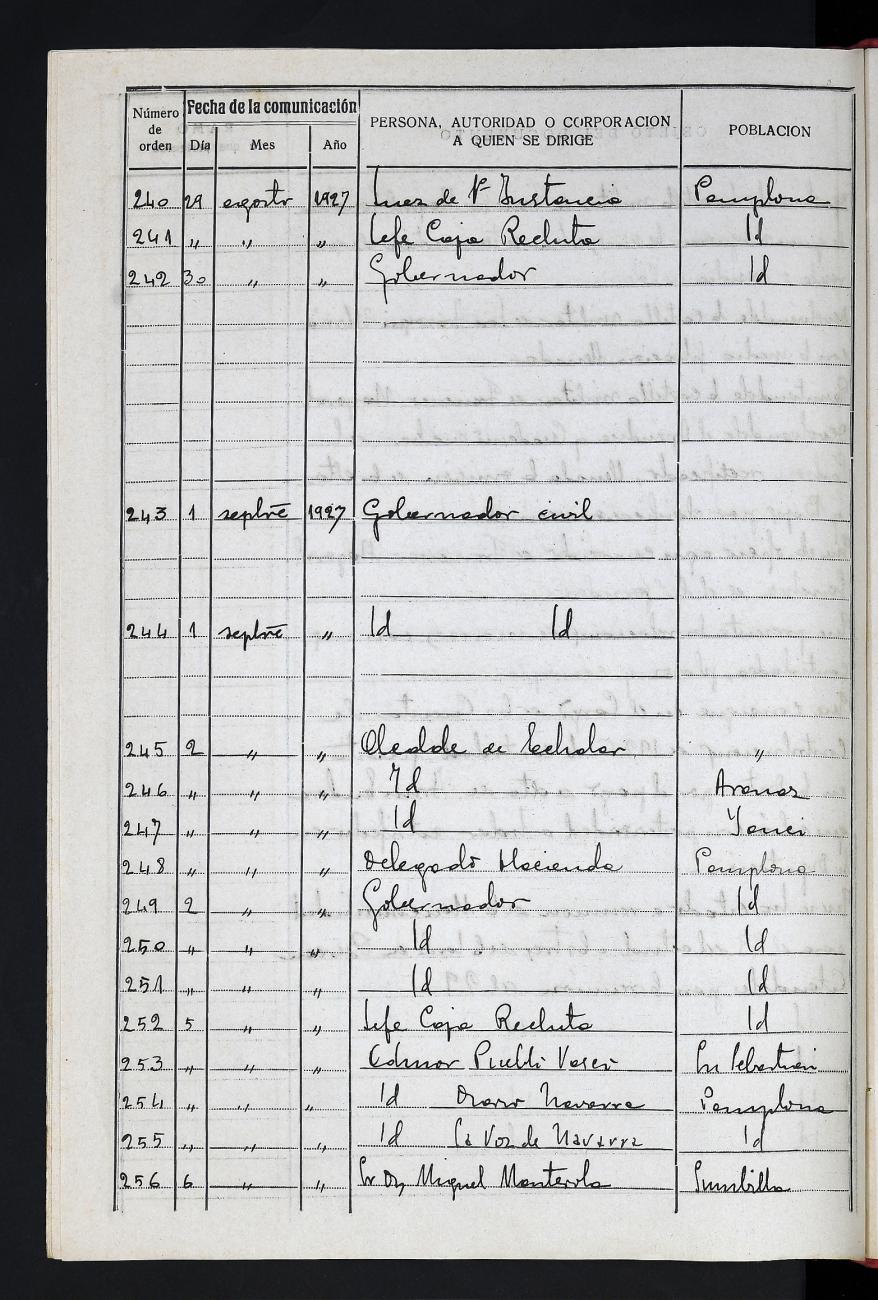 Número de orden | Fecha de la comunicación | PERSONA, AUTORIDAD O CORPORACION A QUIEN SE DIRIGE | POBLACION
Día | Mes | Año
240 29 agosto 1927 Juez de 1ª Instancia Pamplona
241 " " " Jefe Caja Recluta Id
242 30 " " Gobernador Id
243 1 sepbre 1927 Gobernador civil
244 1 sepbre " Id Id
245 2 " " Alcalde de Echalar "
246 " " " Id Aranaz
247 " " " Id Yanci
248 " " " Delegado Hacienda Pamplona
249 2 " " Gobernador Id
250 " " " Id Id
251 " " " Id Id
252 5 " " Jefe Caja Recluta Id
253 " " " Pueblo Vasco Sn Sebastian
254 " " " Id Diario Navarra Pamplona
255 " " " Id La Voz de Navarra Id
256 6 " " Sr Dn Miguel Manterola Sumbilla